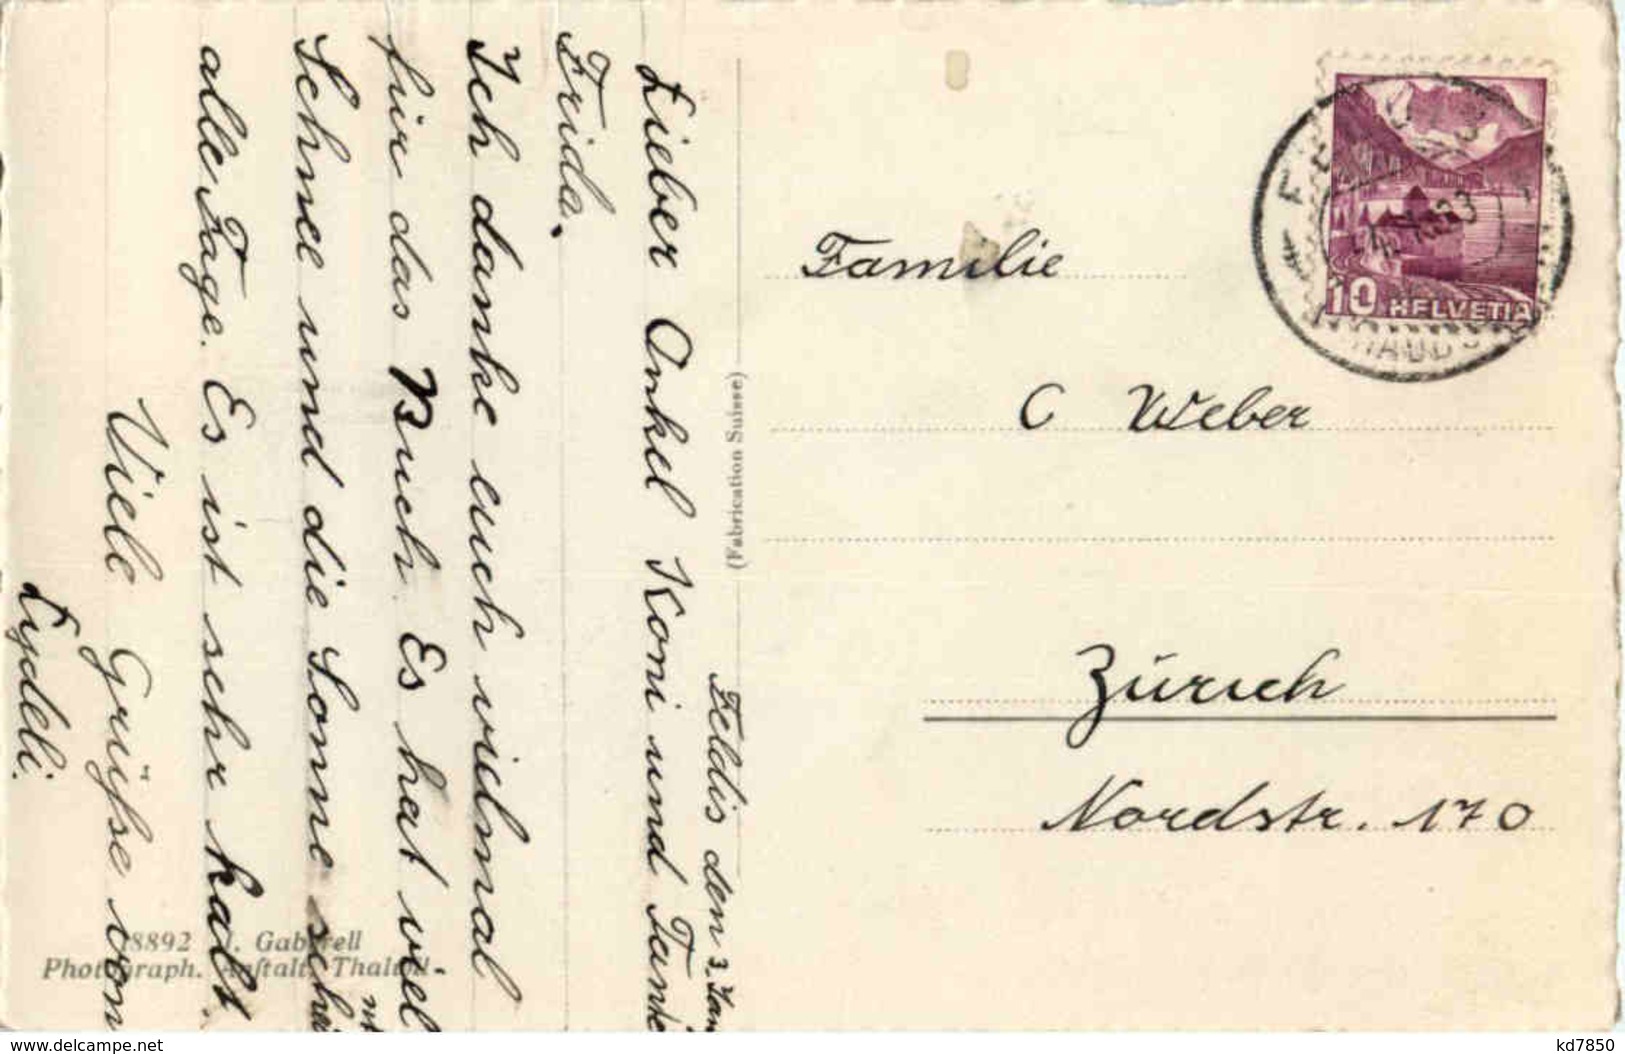 Feldis den 3. Jan
Lieber Onkel Koni und Tante
Frida.
Ich danke euch vielmal
für das Buch. Es hat viel
Schnee und die Sonne schei
nt
alle Tage. Es ist sehr kalt.
Viele Grüsse von
Lydeli.
(Fabrication Suisse)
18892 J. Gaberell
Photograph. Anstalt, Thalwil.
Familie
C Weber
Zürich
Nordstr. 170
10 HELVETIA
delcampe.net
kd7850